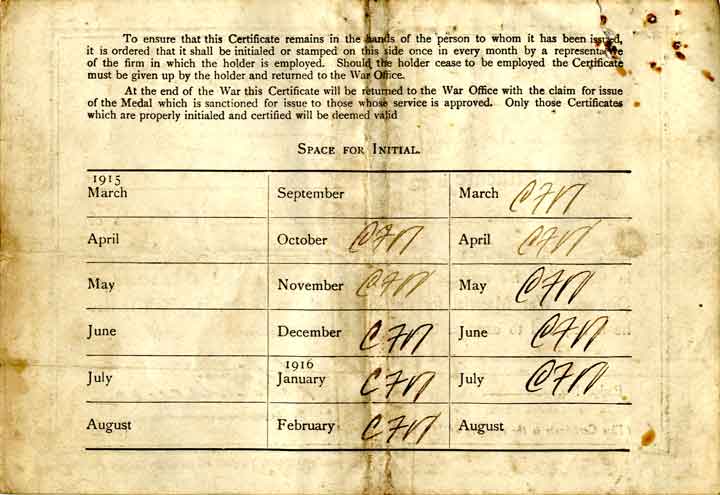 To ensure that this Certificate remains in the hands of the person to whom it has been issued,
it is ordered that it shall be initialed or stamped on this side once in every month by a representative
of the firm in which the holder is employed. Should the holder cease to be employed the Certificate
must be given up by the holder and returned to the War Office.
At the end of the War this Certificate will be returned to the War Office with the claim for issue
of the Medal which is sanctioned for issue to those whose service is approved. Only those Certificates
which are properly initialed and certified will be deemed valid
SPACE FOR INITIAL.
1915
March September March
April October April
May November May
June December June
1916
July January July
August February August